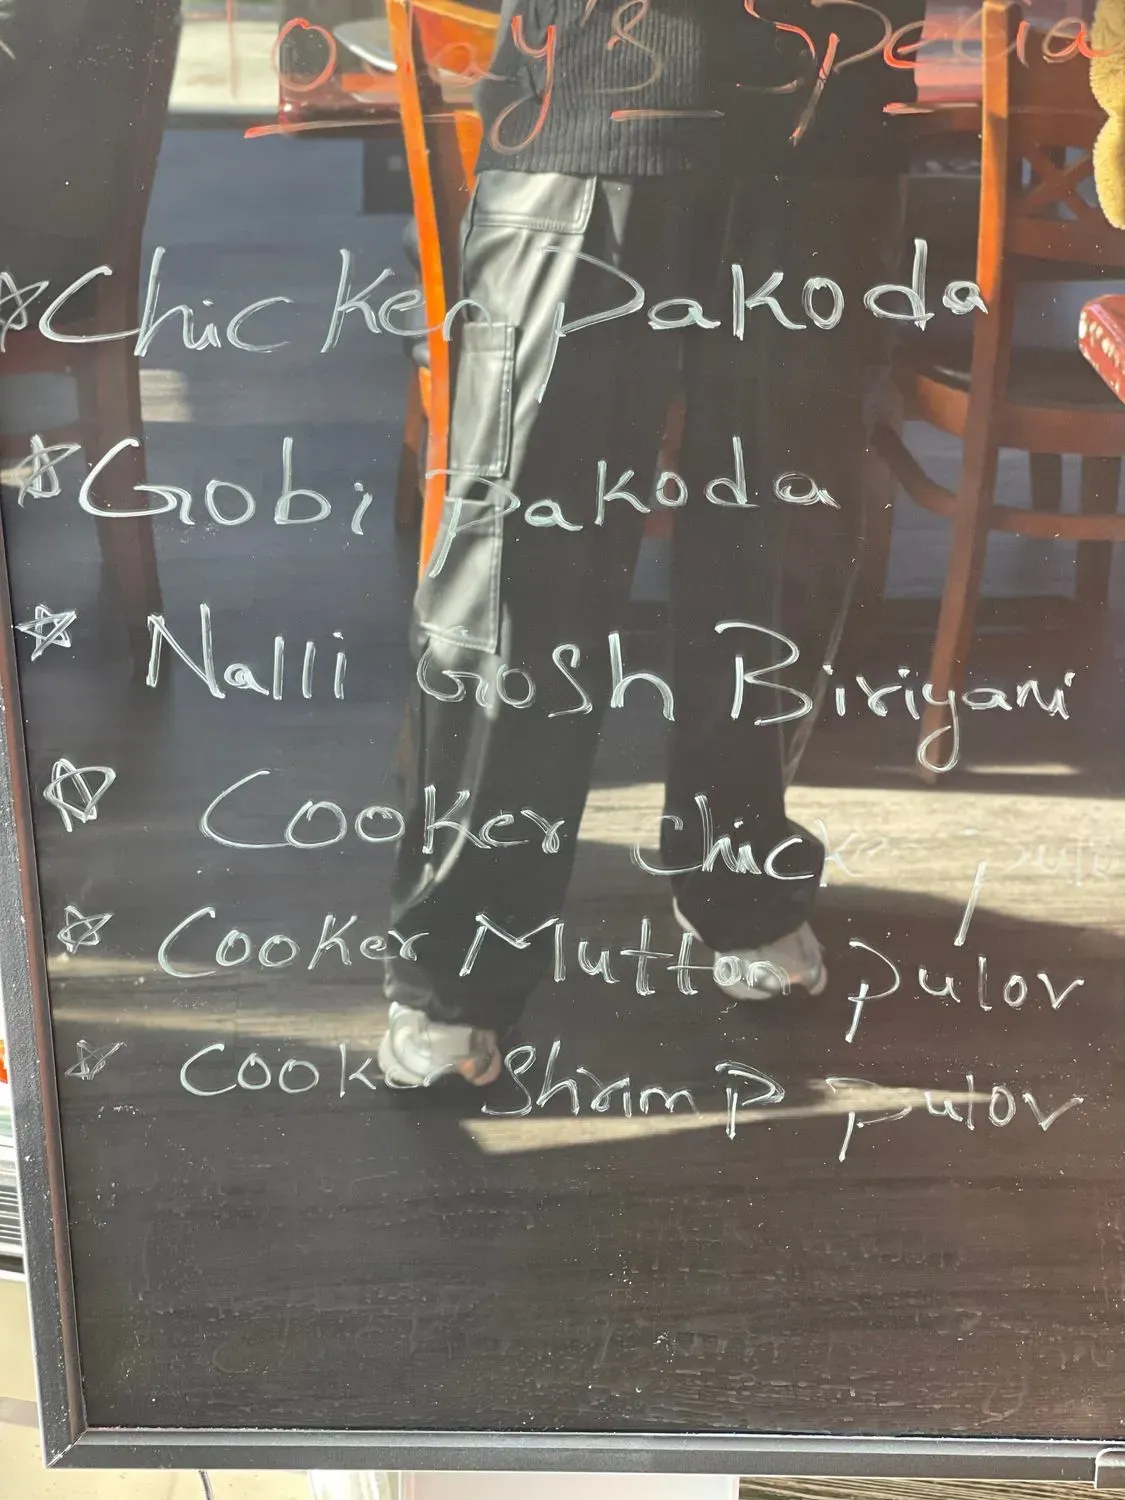 oday's Specia
☆ Chicken Pakoda
☆ Gobi Pakoda
☆ Nalli Gosh Biriyani
☆ Cooker chicken pulo
☆ Cooker Mutton Pulov
☆ Cooker Shrimp Pulov